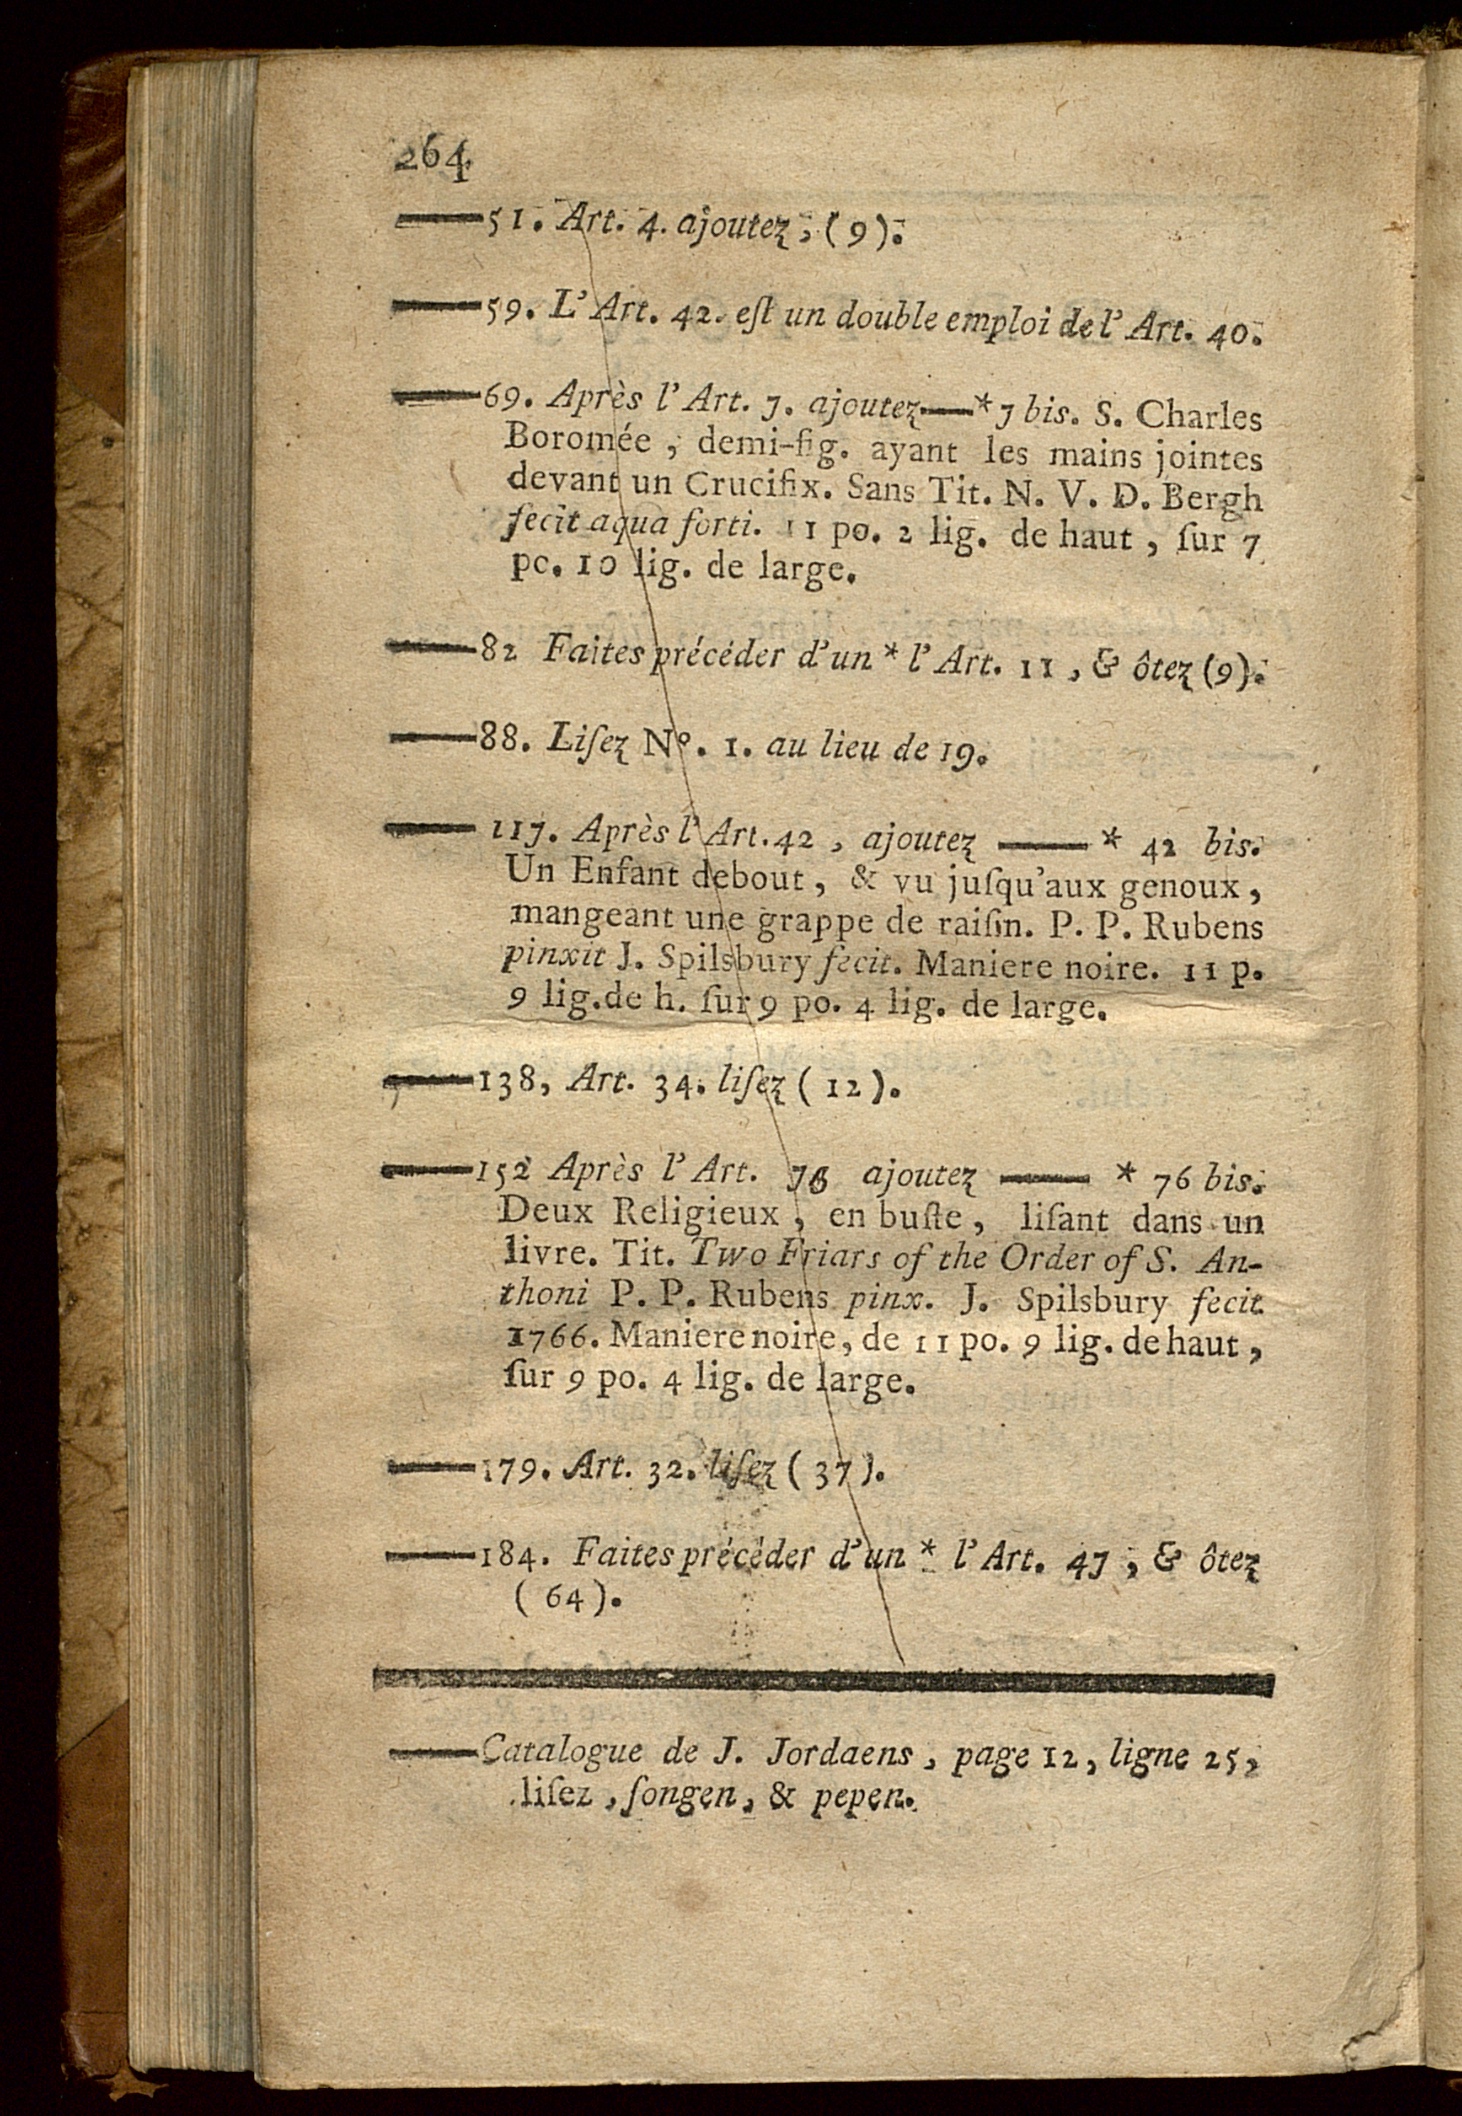 264
——51. Art. 4. ajoutez, (9).
——59. L'Art. 42. eſt un double emploi de l'Art. 40.
——69. Après l'Art. 7. ajoutez——*7 bis. S. Charles
Boromée, demi-fig. ayant les mains jointes
devant un Crucifix. Sans Tit. N. V. D. Bergh
fecit aqua forti. 11 po. 2 lig. de haut, ſur 7
po. 10 lig. de large.
——82 Faites précéder d'un * l'Art. 11, & ôtez (9).
——88. Liſez Nº. 1. au lieu de 19.
—— 117. Après l'Art. 42, ajoutez —— * 42 bis.
Un Enfant debout, & vu juſqu'aux genoux,
mangeant une grappe de raiſin. P. P. Rubens
pinxit J. Spilsbury fecit. Maniere noire. 11 p.
9 lig. de h. ſur 9 po. 4 lig. de large.
——138, Art. 34. liſez (12).
——152 Après l'Art. 76 ajoutez —— * 76 bis.
Deux Religieux, en buſte, liſant dans un
livre. Tit. Two Friars of the Order of S. An-
thoni P. P. Rubens pinx. J. Spilsbury fecit
1766. Maniere noire, de 11 po. 9 lig. de haut,
ſur 9 po. 4 lig. de large.
——179. Art. 32. liſez (37).
——184. Faites précéder d'un * l'Art. 47, & ôtez
(64).
——Catalogue de J. Jordaens, page 12, ligne 25,
liſez, ſongen, & pepen.